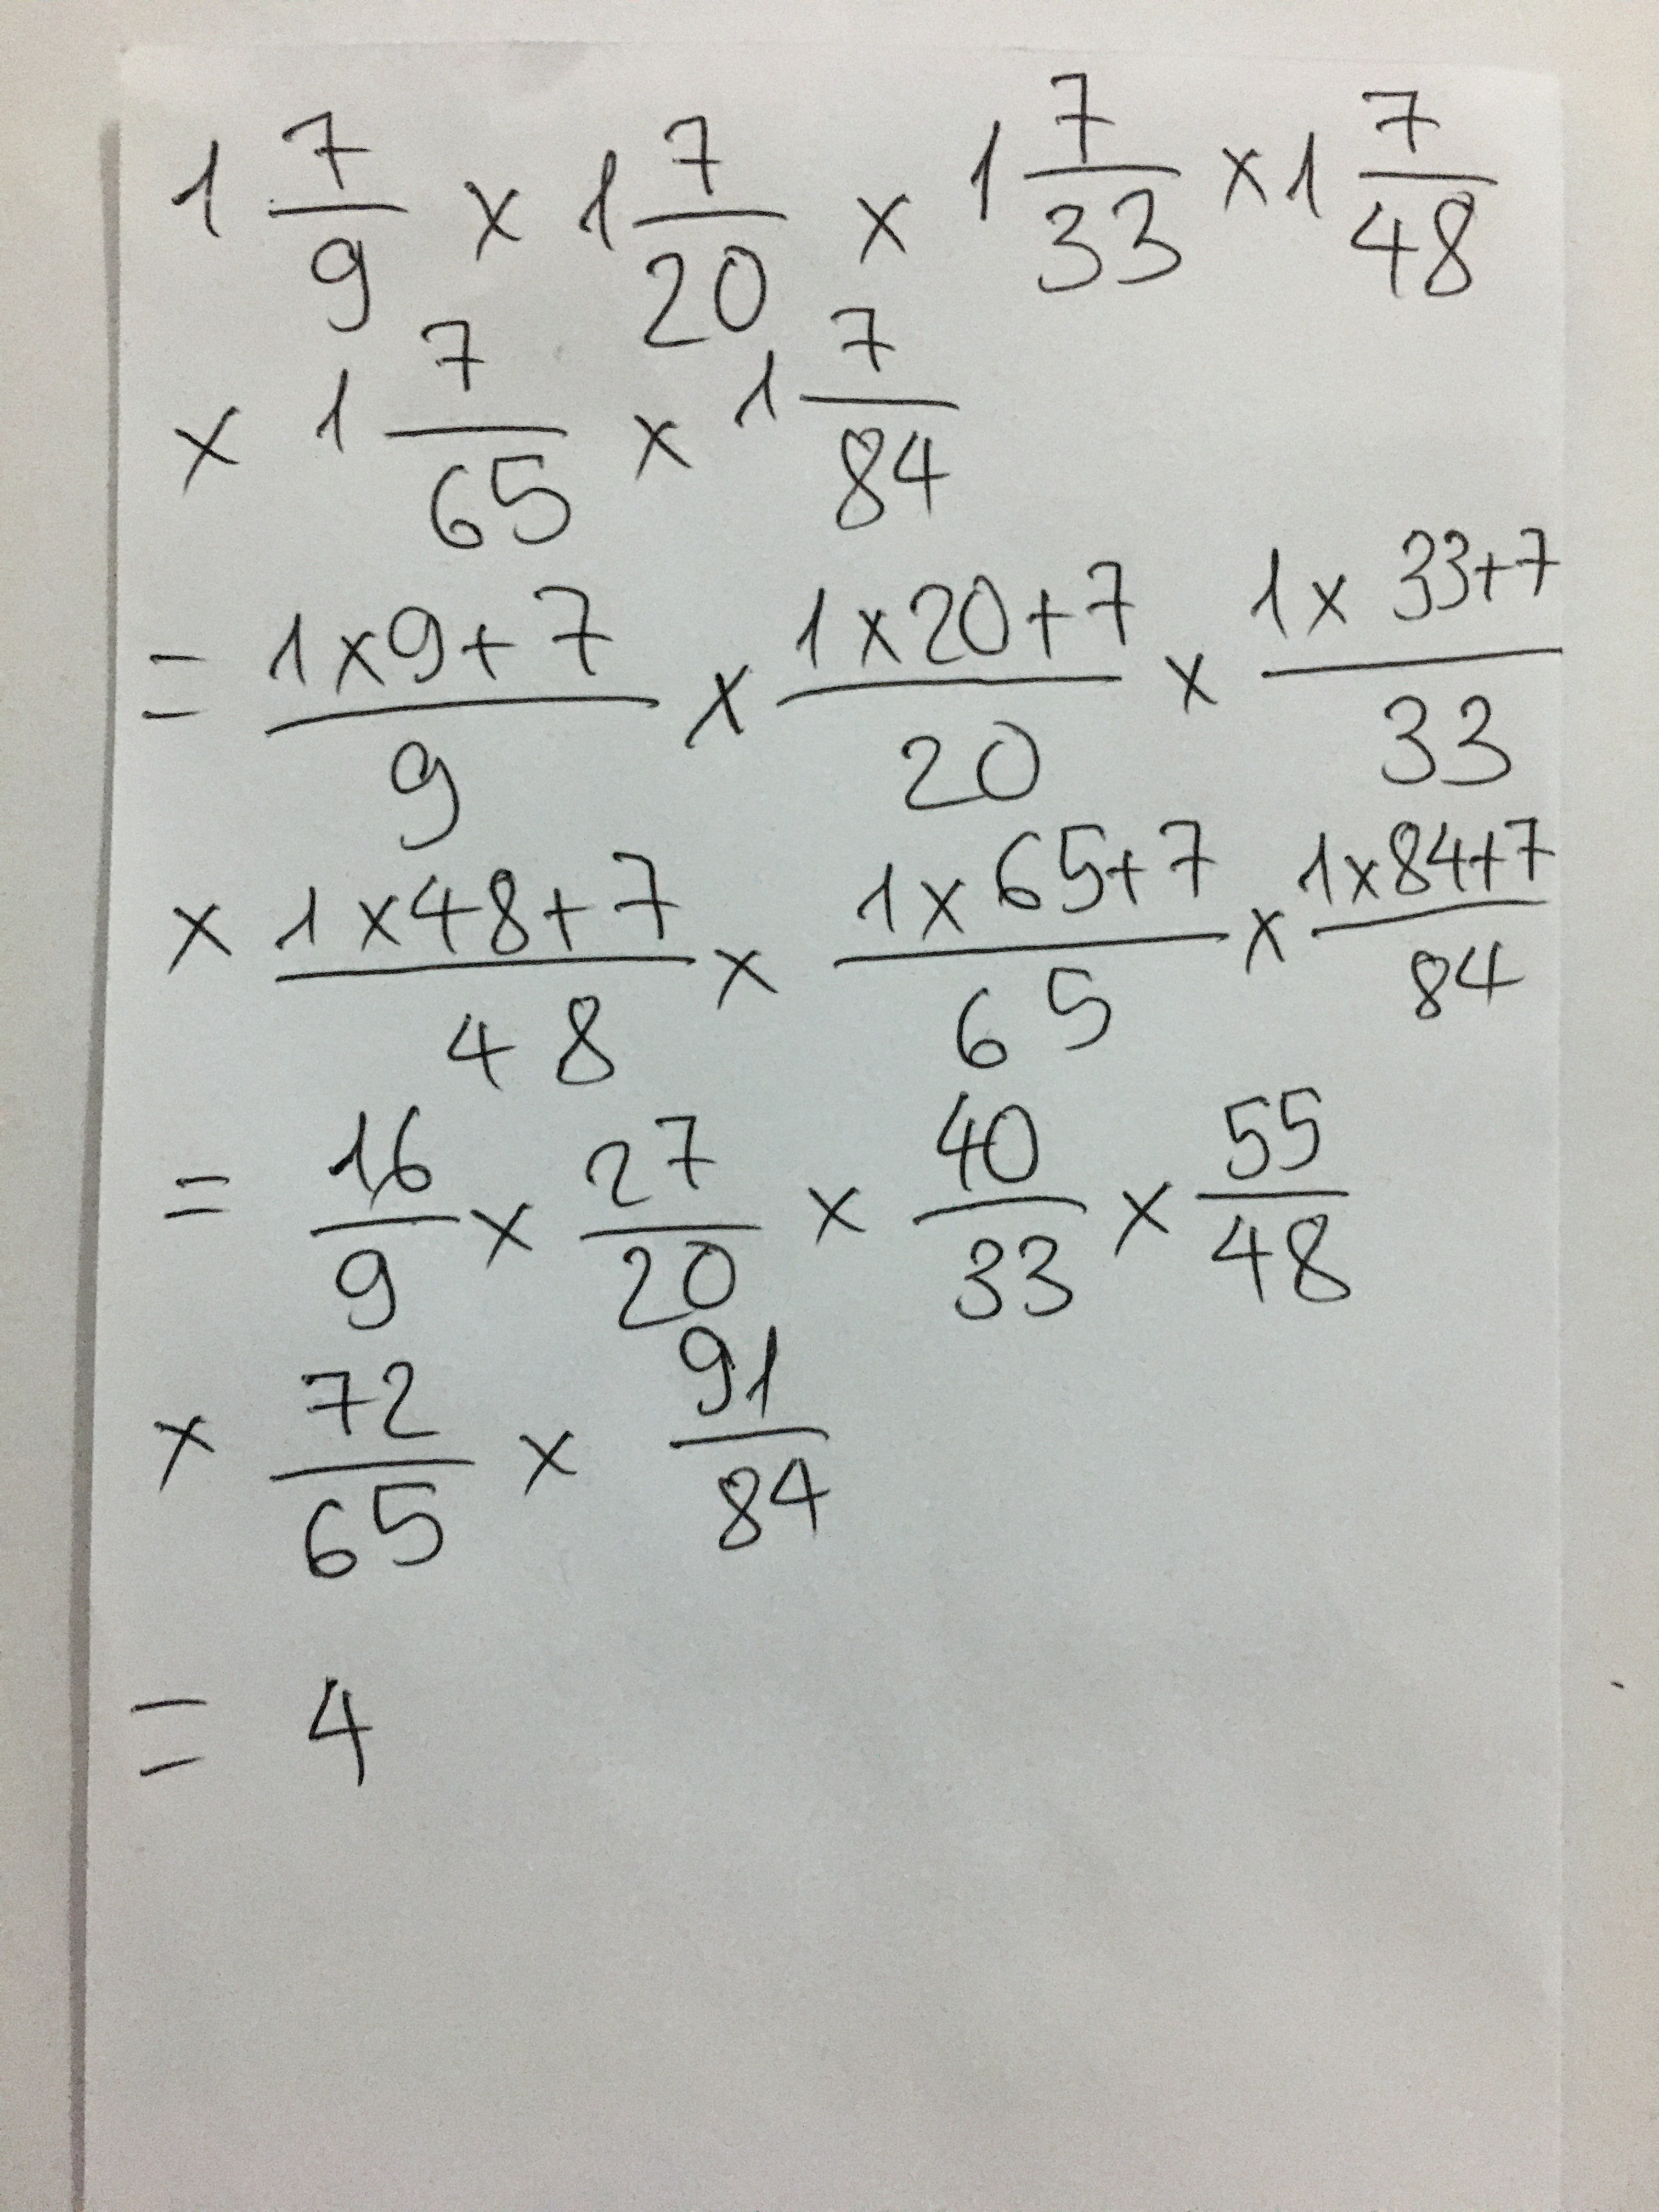 1 7/9 × 1 7/20 × 1 7/33 × 1 7/48
× 1 7/65 × 1 7/84
= (1×9+7)/9 × (1×20+7)/20 × (1×33+7)/33
× (1×48+7)/48 × (1×65+7)/65 × (1×84+7)/84
= 16/9 × 27/20 × 40/33 × 55/48
× 72/65 × 91/84
= 4